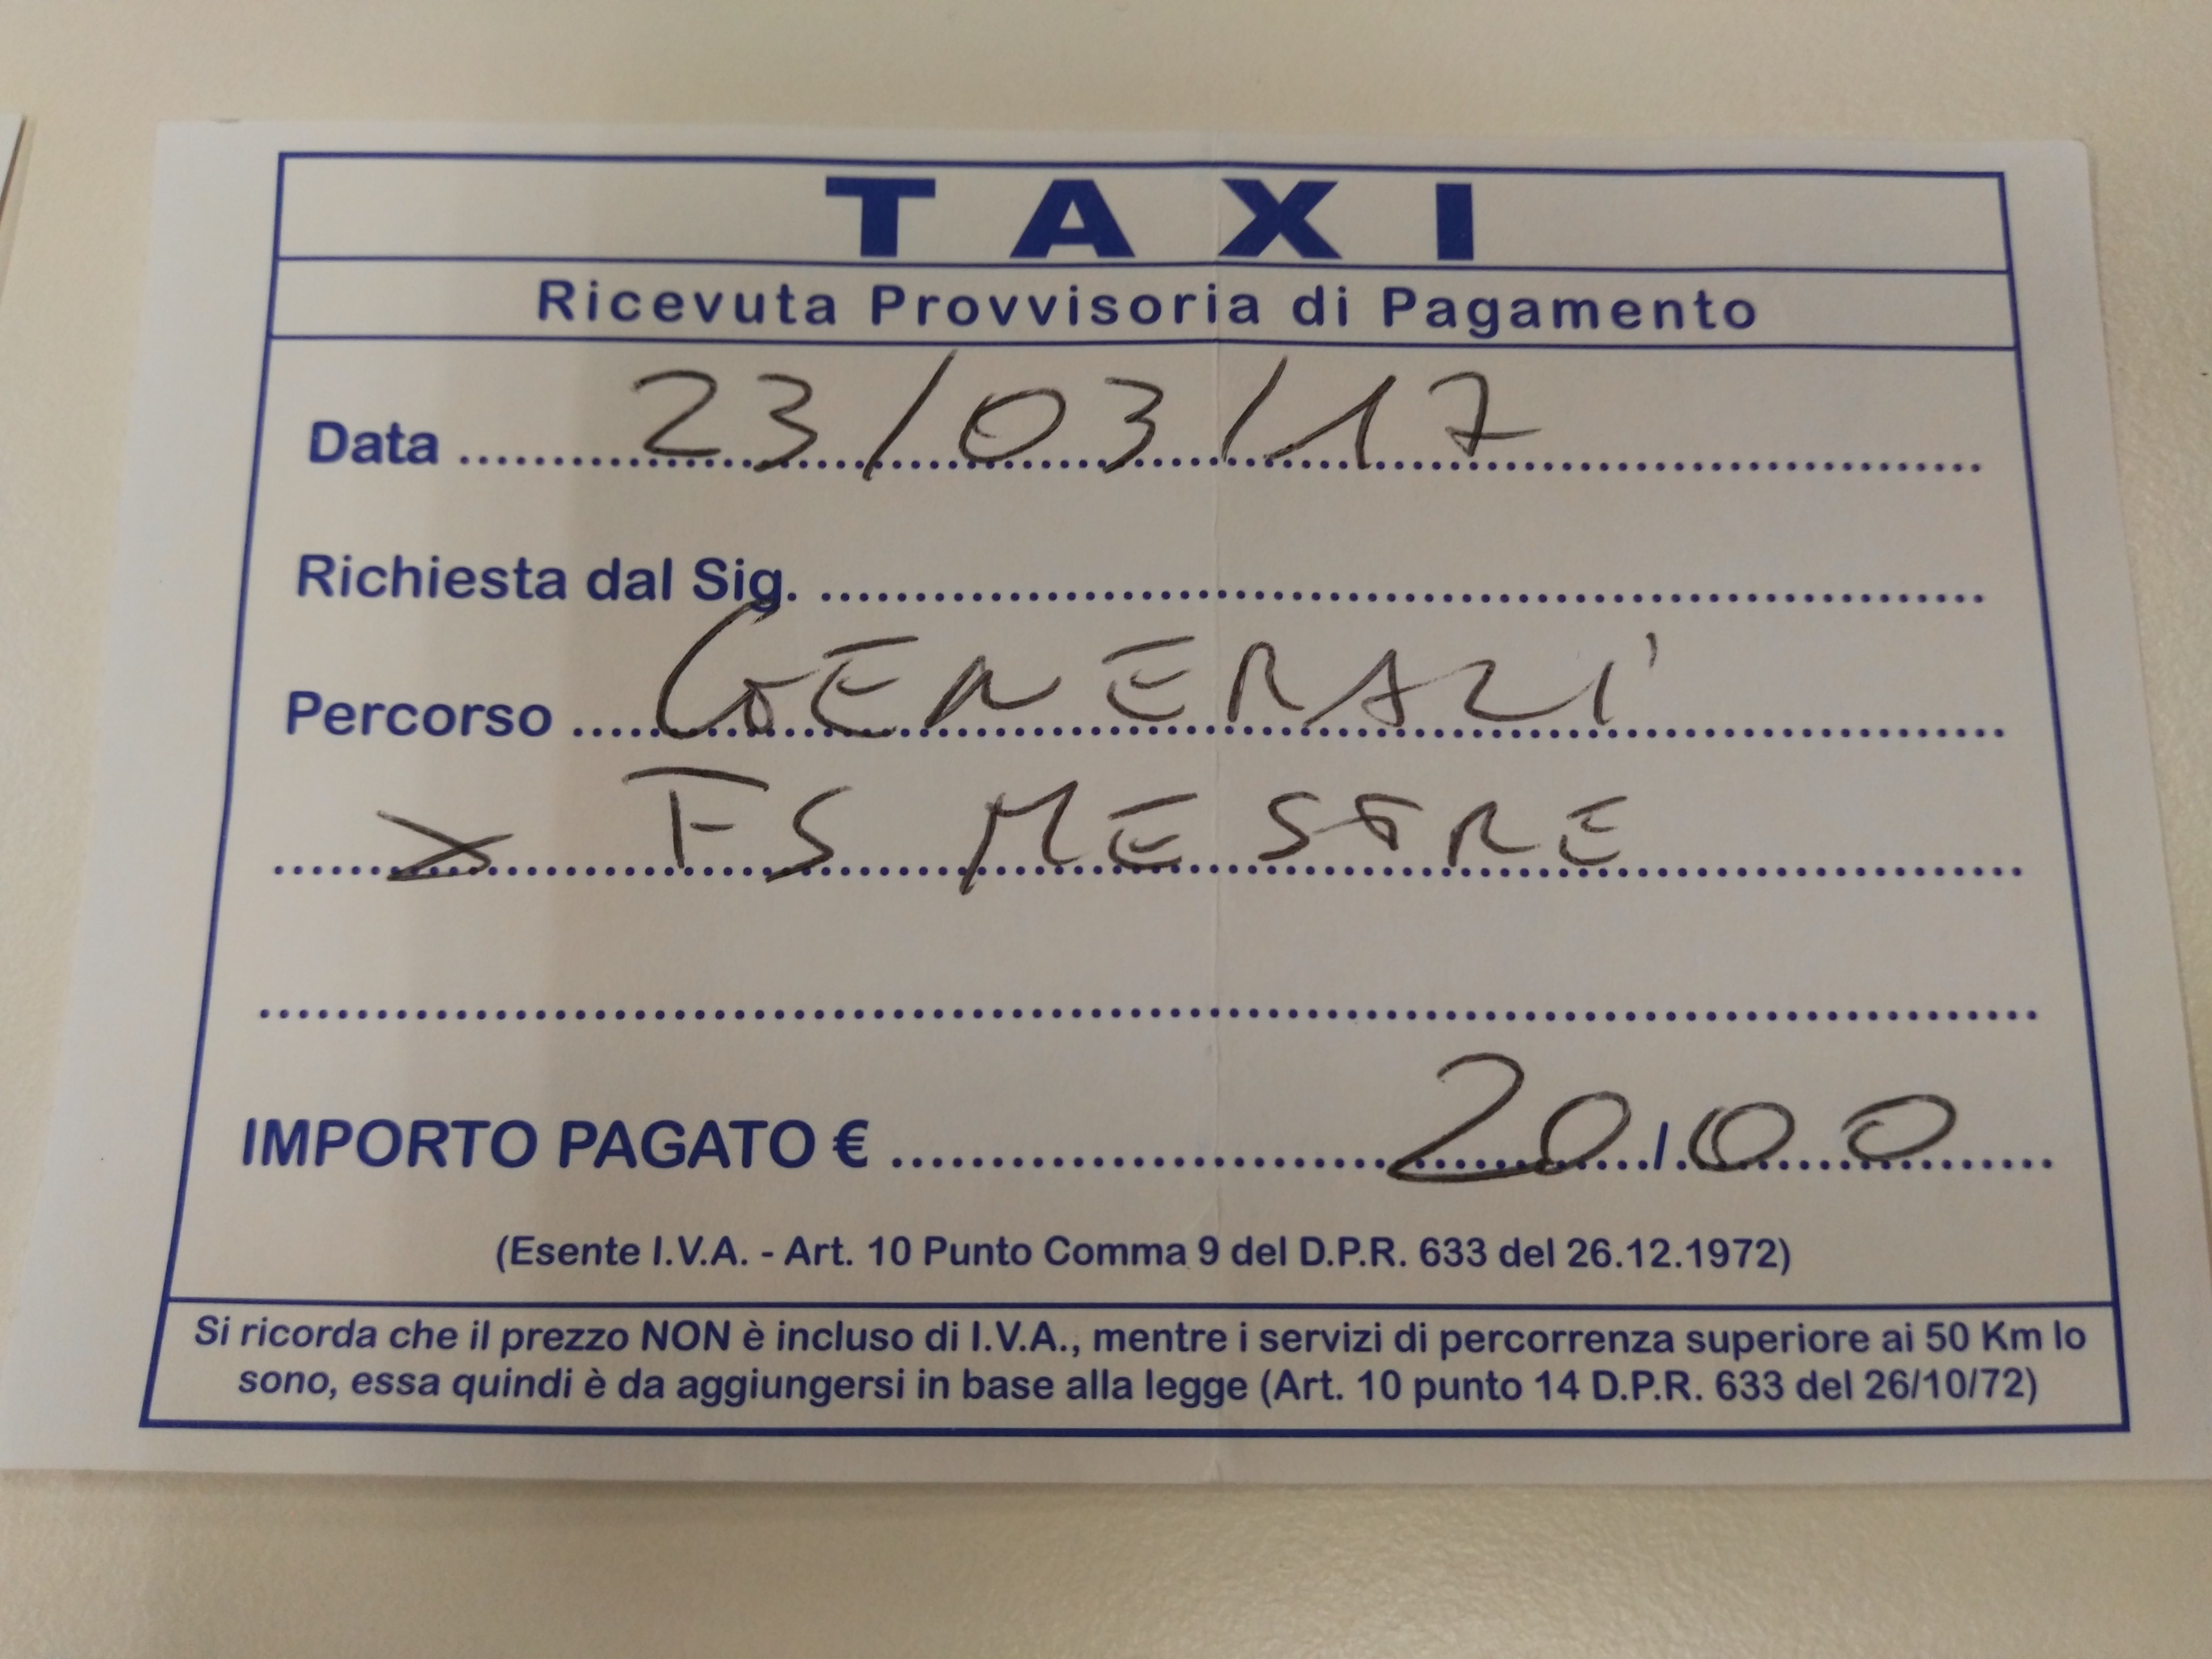 TAXI
Ricevuta Provvisoria di Pagamento
Data 23/03/17
Richiesta dal Sig.
Percorso GENERALI
x FS MESTRE
IMPORTO PAGATO € 20,00
(Esente I.V.A. - Art. 10 Punto Comma 9 del D.P.R. 633 del 26.12.1972)
Si ricorda che il prezzo NON è incluso di I.V.A., mentre i servizi di percorrenza superiore ai 50 Km lo
sono, essa quindi è da aggiungersi in base alla legge (Art. 10 punto 14 D.P.R. 633 del 26/10/72)